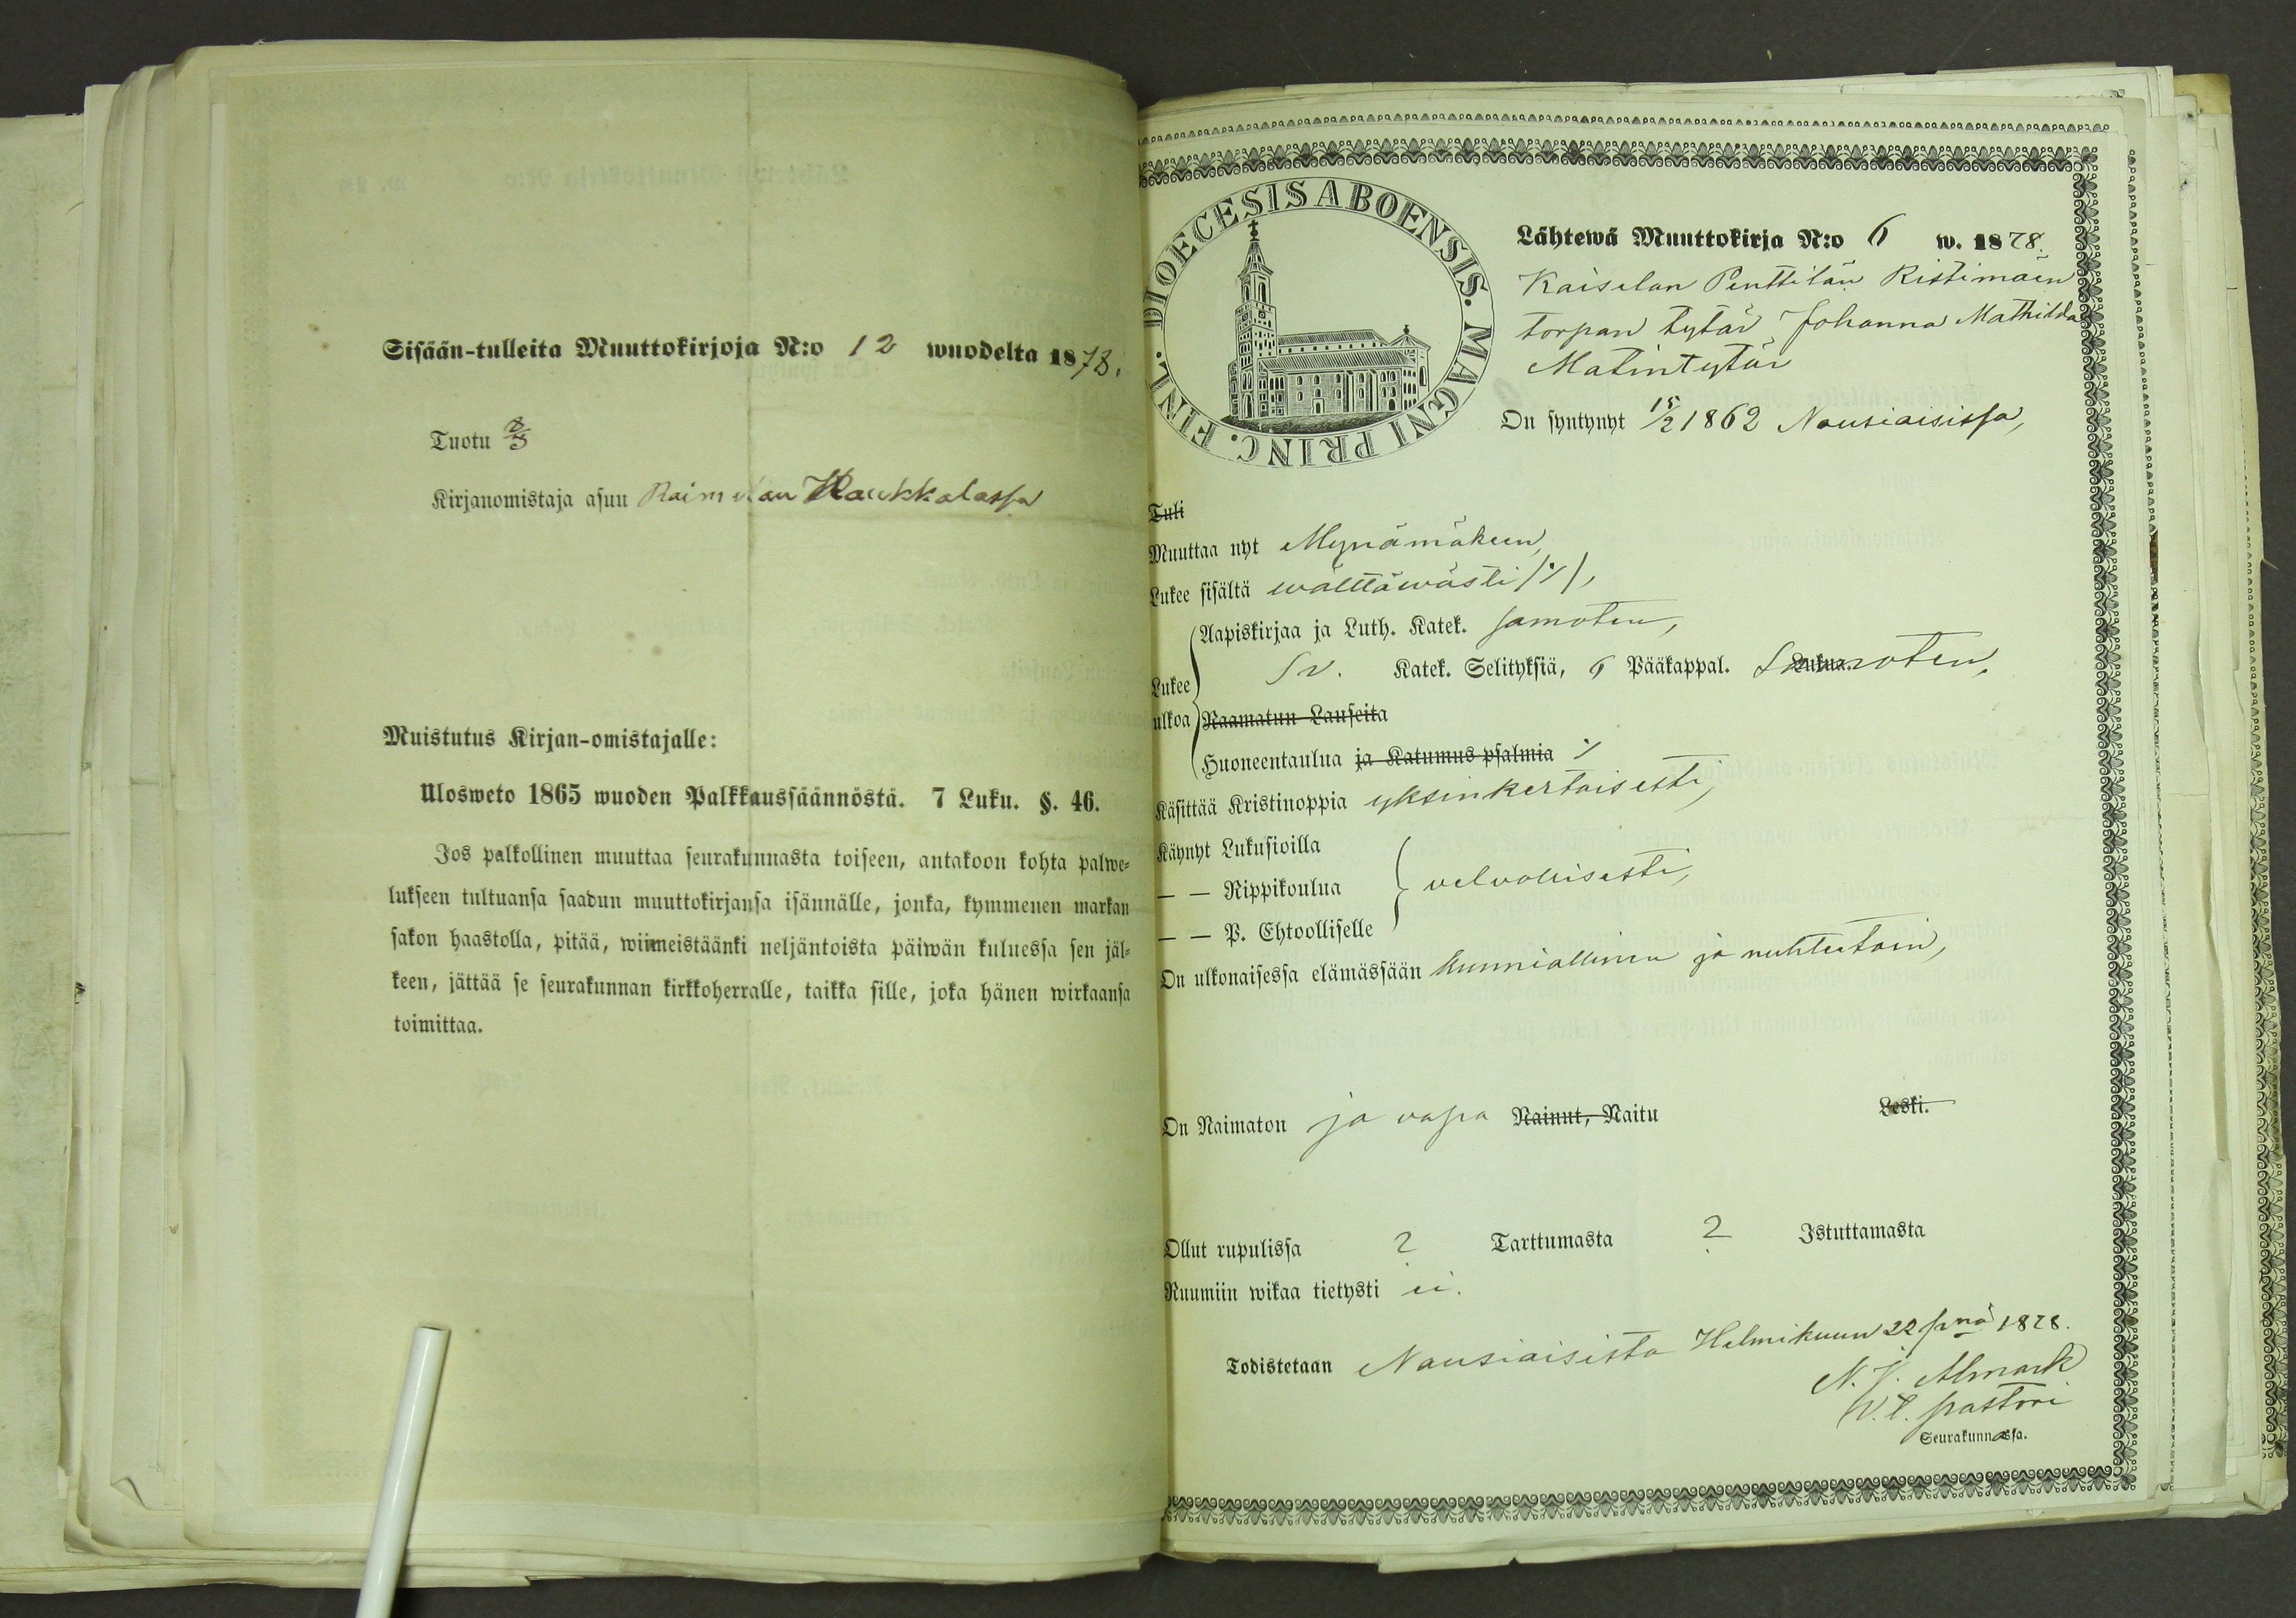 Sisään-tulleita Muuttokirjoja N:o 12 wuodelta 1878.
Tuotu 8/3
Kirjanomistaja asuu Raimelan Haukkalassa
Muistutus Kirjan-omistajalle:
Ulosweto 1865 wuoden Palkkaussäännöstä. 7 Luku. §. 46.
Jos palkollinen muuttaa seurakunnasta toiseen, antakoon kohta palwe-
lukseen tultuansa saadun muuttokirjansa isännälle, jonka, kymmenen markan
sakon haastolla, pitää, wiimeistäänki neljäntoista päiwän kuluessa sen jäl-
keen, jättää se seurakunnan kirkkoherralle, taikka sille, joka hänen wirkaansa
toimittaa.
DIOECESIS ABOENSIS. MAGNI PRINC. FINL.
Lähtewä Muuttokirja N:o 6 w. 1878.
Kaiselan Penttilän Ristimäen
torpan tytär Johanna Mathilda
Matintytär
On syntynyt 15/2 1862 Nousiaisissa,
Tuli
Muuttaa nyt Mynämäkeen,
Lukee sisältä wälttäwästi /·/,
Aapiskirjaa ja Luth. Katek. samoten,
Lukee Sv. Katek. Selityksiä, 6 Pääkappal. Lukua. Samoten,
ulkoa Raamatun Lauseita
Huoneentaulua ja Katumus psalmia ·/.
Käsittää Kristinoppia yksinkertaisesti,
Käynyt Lukusioilla
— — Rippikoulua velvollisesti,
— — P. Ehtoolliselle
On ulkonaisessa elämässään kunniallinen ja nuhteetoin,
On Naimaton ja vapa Nainut, Naitu Leski.
Ollut rupulissa ? Tarttumasta ? Istuttamasta
Ruumiin wikaa tietysti ei.
Todistetaan Nousiaisista Helmikuun 22 pnä 1878.
N. J. Almark
W. t. pastori
Seurakunnassa.